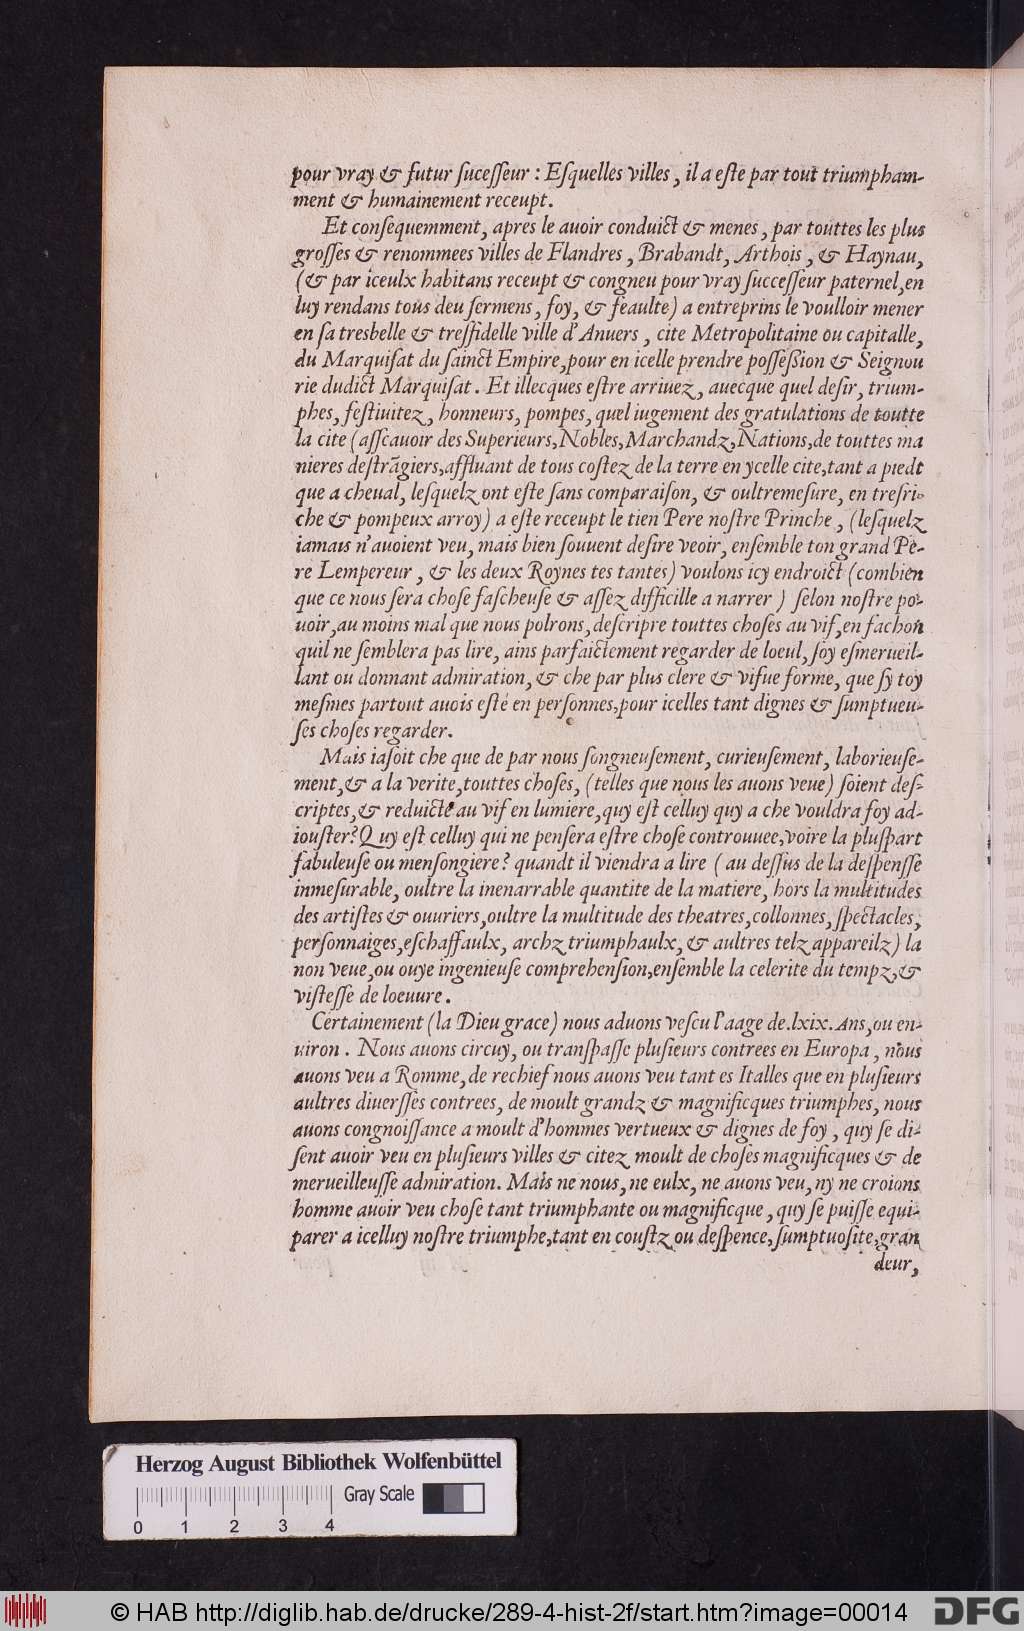 pour vray & futur ſuceſſeur : Eſquelles villes , il a eſte par tout triumpham-
ment & humainement receupt.
Et conſequemment, apres le auoir conduict & menes , par touttes les plus
groſſes & renommees villes de Flandres , Brabandt, Arthois , & Haynau,
(& par iceulx habitans receupt & congneu pour vray ſucceſſeur paternel,en
luy rendans tous deu ſermens, foy, & feaulte) a entreprins le voulloir mener
en ſa tresbelle & treſſidelle ville d'Anuers , cite Metropolitaine ou capitalle,
du Marquiſat du ſainct Empire,pour en icelle prendre poſſeßion & Seignou
rie dudict Marquiſat . Et illecques eſtre arriuez , auecque quel deſir, trium-
phes, feſtiuitez , honneurs, pompes, quel iugement des gratulations de toutte
la cite (aſſcauoir des Superieurs,Nobles,Marchandz,Nations,de touttes ma
nieres deſtrãgiers,affluant de tous coſtez de la terre en ycelle cite,tant a piedt
que a cheual, leſquelz ont eſte ſans comparaiſon, & oultremeſure, en treſri-
che & pompeux arroy) a eſte receupt le tien Pere noſtre Prinche , (leſquelz
iamais n'auoient veu, mais bien ſouuent deſire veoir, enſemble ton grand Pe-
re Lempereur , & les deux Roynes tes tantes) voulons icy endroict (combien
que ce nous ſera choſe faſcheuſe & aſſez difficille a narrer ) ſelon noſtre po-
uoir,au moins mal que nous polrons,deſcripre touttes choſes au vif,en fachon
quil ne ſemblera pas lire, ains parfaictement regarder de loeul, ſoy eſmerueil-
lant ou donnant admiration, & che par plus clere & vifue forme, que ſy toy
meſmes partout auois eſté en perſonnes,pour icelles tant dignes & ſumptueu-
ſes choſes regarder.
Mais iaſoit che que de par nous ſongneuſement, curieuſement, laborieuſe-
ment,& a la verite,touttes choſes, (telles que nous les auons veue) ſoient deſ-
criptes,& reduicte au vif en lumiere,quy eſt celluy quy a che vouldra foy ad-
iouſter? Quy eſt celluy qui ne penſera eſtre choſe controuuee,voire la pluſpart
fabuleuſe ou menſongiere? quandt il viendra a lire ( au deſſus de la deſpenſſe
inmeſurable, oultre la inenarrable quantite de la matiere, hors la multitudes
des artiſtes & ouuriers,oultre la multitude des theatres,collonnes, ſpectacles,
perſonnaiges,eſchaffaulx, archz triumphaulx, & aultres telz appareilz) la
non veue,ou ouye ingenieuſe comprehenſion,enſemble la celerite du tempz,&
viſteſſe de loeuure .
Certainement (la Dieu grace) nous aduons veſcu l'aage de.lxix.Ans,ou en-
uiron . Nous auons circuy, ou tranſpaſſe pluſieurs contrees en Europa , nous
auons veu a Romme,de rechief nous auons veu tant es Italles que en pluſieurs
aultres diuerſſes contrees, de moult grandz & magnificques triumphes, nous
auons congnoiſſance a moult d'hommes vertueux & dignes de foy , quy ſe di-
ſent auoir veu en pluſieurs villes & citez moult de choſes magnificques & de
merueilleuſſe admiration. Mais ne nous, ne eulx, ne auons veu, ny ne croions
homme auoir veu choſe tant triumphante ou magnificque , quy ſe puiſſe equi-
parer a icelluy noſtre triumphe,tant en couſtz ou deſpence,ſumptuoſite,gran
deur,
Herzog August Bibliothek Wolfenbüttel
Gray Scale
0 1 2 3 4
© HAB http://diglib.hab.de/drucke/289-4-hist-2f/start.htm?image=00014
DFG